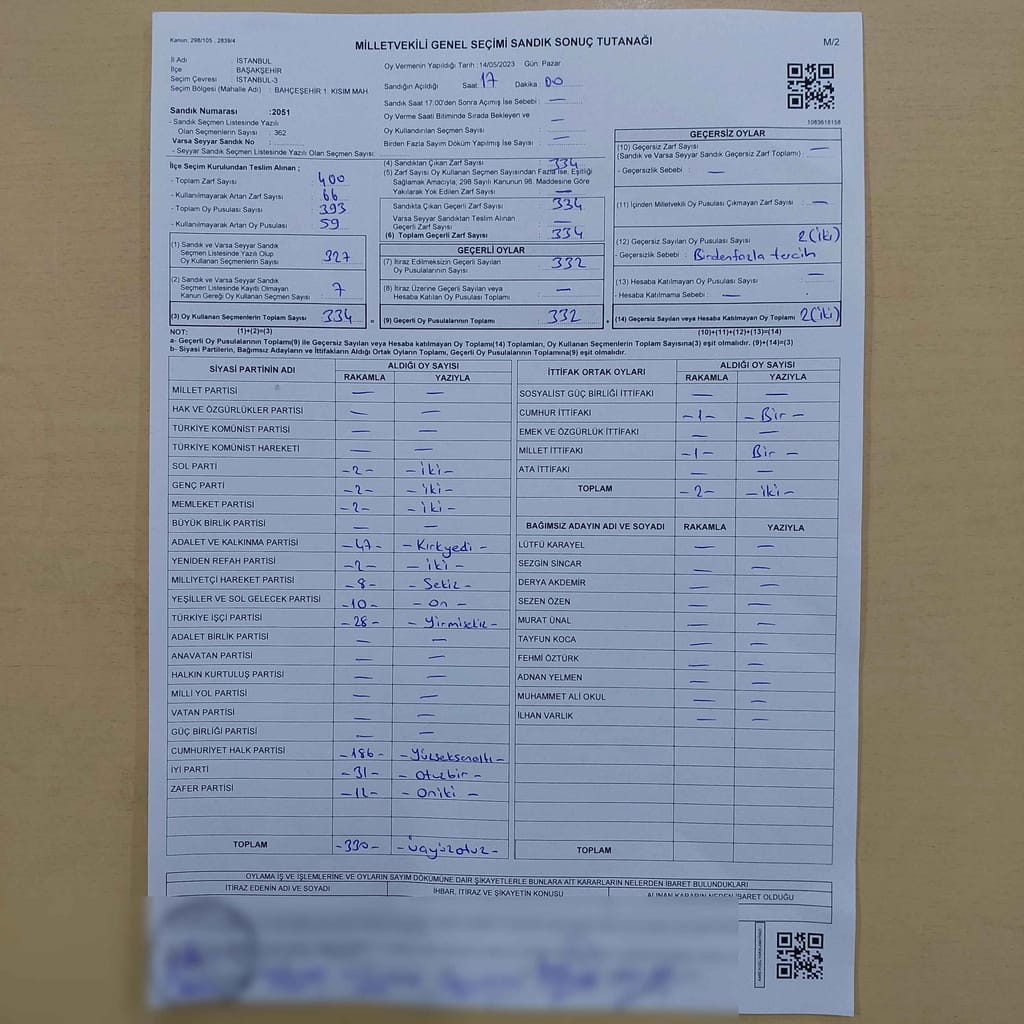 Kanun, 298/105 , 2839/4
MİLLETVEKİLİ GENEL SEÇİMİ SANDIK SONUÇ TUTANAĞI
M/2
İl Adı : İSTANBUL
İlçe BAŞAKŞEHİR
Seçim Çevresi : İSTANBUL-3
Seçim Bölgesi (Mahalle Adı) : BAHÇEŞEHİR 1. KISIM MAH
Sandık Numarası :2051
- Sandık Seçmen Listesinde Yazılı
Olan Seçmenlerin Sayısı : 362
Varsa Seyyar Sandık No :
- Seyyar Sandık Seçmen Listesinde Yazılı Olan Seçmen Sayısı:
Oy Vermenin Yapıldığı Tarih : 14/05/2023 Gün: Pazar
Sandığın Açıldığı Saat: 17 Dakika : 00
Sandık Saat 17:00'den Sonra Açımış İse Sebebi : —
Oy Verme Saati Bitiminde Sırada Bekleyen ve
Oy Kullandırılan Seçmen Sayısı : —
Birden Fazla Sayım Döküm Yapılmış İse Sayısı : —
1083618158
İlçe Seçim Kurulundan Teslim Alınan ;
- Toplam Zarf Sayısı : 400
- Kullanılmayarak Artan Zarf Sayısı : 66
- Toplam Oy Pusulası Sayısı : 393
- Kullanılmayarak Artan Oy Pusulası : 59
(1) Sandık ve Varsa Seyyar Sandık
Seçmen Listesinde Yazılı Olup
Oy Kullanan Seçmenlerin Sayısı : 327
(2) Sandık ve Varsa Seyyar Sandık
Seçmen Listesinde Kayıtlı Olmayan
Kanun Gereği Oy Kullanan Seçmen Sayısı : 7
(3) Oy Kullanan Seçmenlerin Toplam Sayısı : 334
(4) Sandıktan Çıkan Zarf Sayısı : 334
(5) Zarf Sayısı Oy Kullanan Seçmen Sayısından Fazla İse, Eşitliği
Sağlamak Amacıyla, 298 Sayılı Kanunun 98. Maddesine Göre
Yakılarak Yok Edilen Zarf Sayısı : —
Sandıkta Çıkan Geçerli Zarf Sayısı : 334
Varsa Seyyar Sandıktan Teslim Alınan
Geçerli Zarf Sayısı : —
(6) Toplam Geçerli Zarf Sayısı : 334
GEÇERLİ OYLAR
(7) İtiraz Edilmeksizin Geçerli Sayılan
Oy Pusulalarının Sayısı : 332
(8) İtiraz Üzerine Geçerli Sayılan veya
Hesaba Katılan Oy Pusulası Toplamı : —
= (9) Geçerli Oy Pusulalarının Toplamı : 332
GEÇERSİZ OYLAR
(10) Geçersiz Zarf Sayısı : —
(Sandık ve Varsa Seyyar Sandık Geçersiz Zarf Toplamı)
- Geçersizlik Sebebi : —
(11) İçinden Milletvekili Oy Pusulası Çıkmayan Zarf Sayısı : —
(12) Geçersiz Sayılan Oy Pusulası Sayısı : 2(iki)
- Geçersizlik Sebebi : Birdenfazla tercih
(13) Hesaba Katılmayan Oy Pusulası Sayısı : —
- Hesaba Katılmama Sebebi : —
+ (14) Geçersiz Sayılan veya Hesaba Katılmayan Oy Toplamı : 2(iki)
NOT: (1)+(2)=(3) (10)+(11)+(12)+(13)=(14)
a- Geçerli Oy Pusulalarının Toplamı(9) ile Geçersiz Sayılan veya Hesaba Katılmayan Oy Toplamı(14) Toplamları, Oy Kullanan Seçmenlerin Toplam Sayısına(3) eşit olmalıdır. (9)+(14)=(3)
b- Siyasi Partilerin, Bağımsız Adayların ve İttifakların Aldığı Ortak Oyların Toplamı, Geçerli Oy Pusulalarının Toplamına(9) eşit olmalıdır.
SİYASİ PARTİNİN ADI ALDIĞI OY SAYISI
RAKAMLA YAZIYLA
MİLLET PARTİSİ — —
HAK VE ÖZGÜRLÜKLER PARTİSİ — —
TÜRKİYE KOMÜNİST PARTİSİ — —
TÜRKİYE KOMÜNİST HAREKETİ — —
SOL PARTİ -2- -iki-
GENÇ PARTİ -2- -iki-
MEMLEKET PARTİSİ -2- -iki-
BÜYÜK BİRLİK PARTİSİ — —
ADALET VE KALKINMA PARTİSİ -47- -Kırkyedi-
YENİDEN REFAH PARTİSİ -2- -iki-
MİLLİYETÇİ HAREKET PARTİSİ -8- -Sekiz-
YEŞİLLER VE SOL GELECEK PARTİSİ -10- -on-
TÜRKİYE İŞÇİ PARTİSİ -28- -Yirmisekiz-
ADALET BİRLİK PARTİSİ — —
ANAVATAN PARTİSİ — —
HALKIN KURTULUŞ PARTİSİ — —
MİLLİ YOL PARTİSİ — —
VATAN PARTİSİ — —
GÜÇ BİRLİĞİ PARTİSİ — —
CUMHURİYET HALK PARTİSİ -186- -Yüzseksenaltı-
İYİ PARTİ -31- -otuzbir-
ZAFER PARTİSİ -12- -oniki-
TOPLAM -330- -üçyüzotuz-
İTTİFAK ORTAK OYLARI ALDIĞI OY SAYISI
RAKAMLA YAZIYLA
SOSYALİST GÜÇ BİRLİĞİ İTTİFAKI — —
CUMHUR İTTİFAKI -1- -Bir-
EMEK VE ÖZGÜRLÜK İTTİFAKI — —
MİLLET İTTİFAKI -1- Bir-
ATA İTTİFAKI — —
TOPLAM -2- -iki-
BAĞIMSIZ ADAYIN ADI VE SOYADI RAKAMLA YAZIYLA
LÜTFÜ KARAYEL — —
SEZGİN SİNCAR — —
DERYA AKDEMİR — —
SEZEN ÖZEN — —
MURAT ÜNAL — —
TAYFUN KOCA — —
FEHMİ ÖZTÜRK — —
ADNAN YELMEN — —
MUHAMMET ALİ OKUL — —
İLHAN VARLIK — —
TOPLAM
OYLAMA İŞ VE İŞLEMLERİNE VE OYLARIN SAYIM DÖKÜMÜNE DAİR ŞİKAYETLERLE BUNLARA AİT KARARLARIN NELERDEN İBARET BULUNDUKLARI
İTİRAZ EDENİN ADI VE SOYADI İHBAR, İTİRAZ VE ŞİKAYETİN KONUSU ALINAN KARARIN NEDEN İBARET OLDUĞU